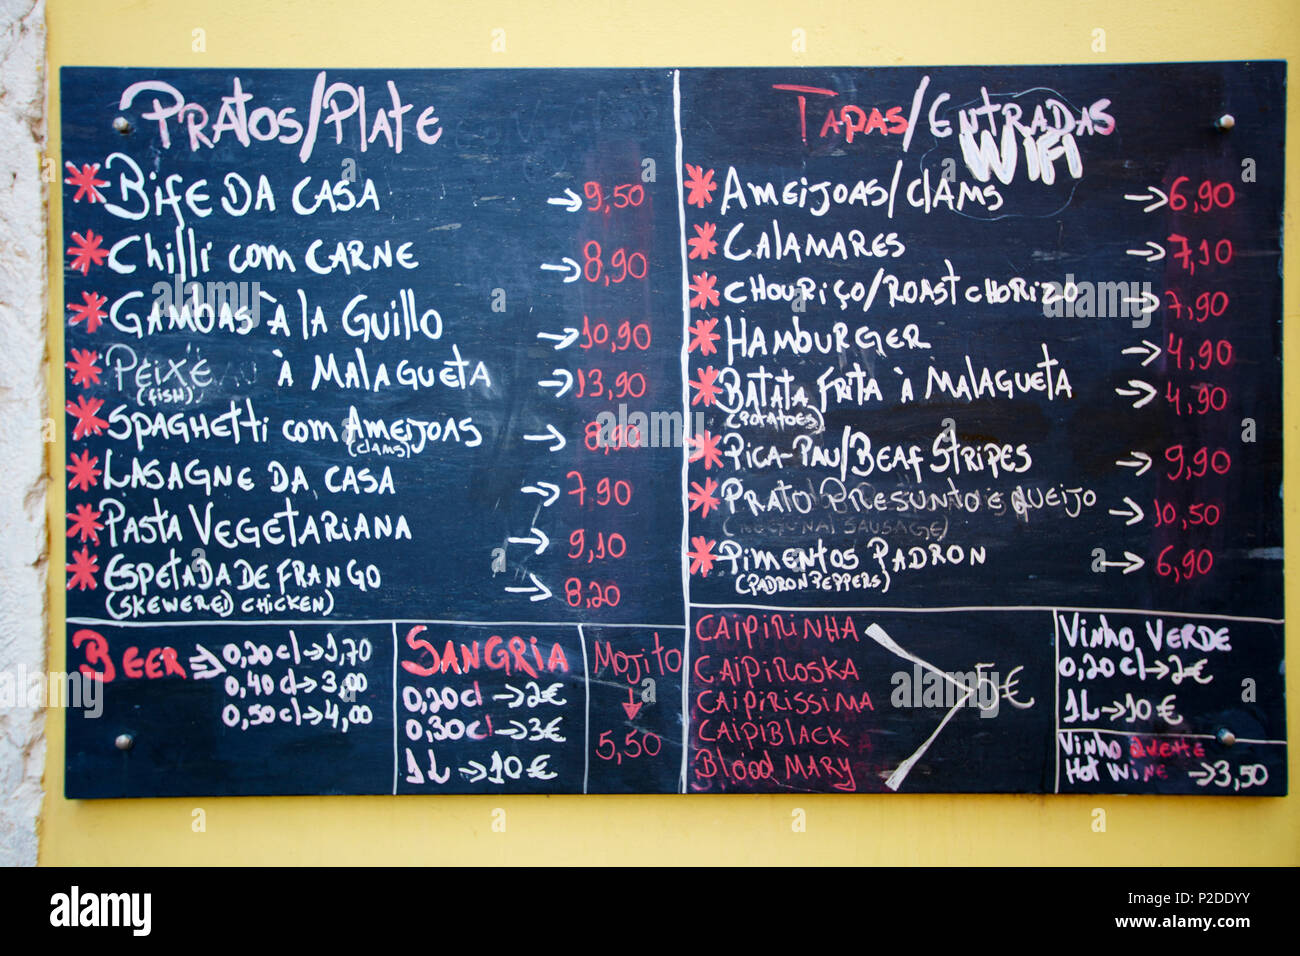 Pratos/Plate
* Bife da casa → 9,50
* Chilli com carne → 8,90
* Gambas à la Guillo → 10,90
* Peixe à Malagueta → 13,90
(fish)
* Spaghetti com Ameijoas → 8,90
(clams)
* Lasagne da casa → 7,90
* Pasta Vegetariana → 9,10
* Espetada de Frango → 8,20
(skewered chicken)
Tapas/Entradas
WIFI
* Ameijoas/Clams → 6,90
* Calamares → 7,10
* Chouriço/Roast Chorizo → 7,90
* Hamburger → 4,90
* Batata Frita à Malagueta → 4,90
(Potatoes)
* Pica-Pau/Beaf Stripes → 9,90
* Prato Presunto e Queijo → 10,50
(Regunal Sausage)
* Pimentos Padron → 6,90
(Padron Peppers)
Beer ⇒ 0,20cl→1,70
0,40cl→3,00
0,50cl→4,00
Sangria
0,20cl→2€
0,30cl→3€
1L→10€
Mojito
↓
5,50
Caipirinha
Caipiroska
Caipirissima
Caipiblack
Blood Mary
5€
Vinho Verde
0,20cl→2€
1L→10€
Vinho Quente
Hot Wine → 3,50
alamy
Image ID: P2DDYY
www.alamy.com